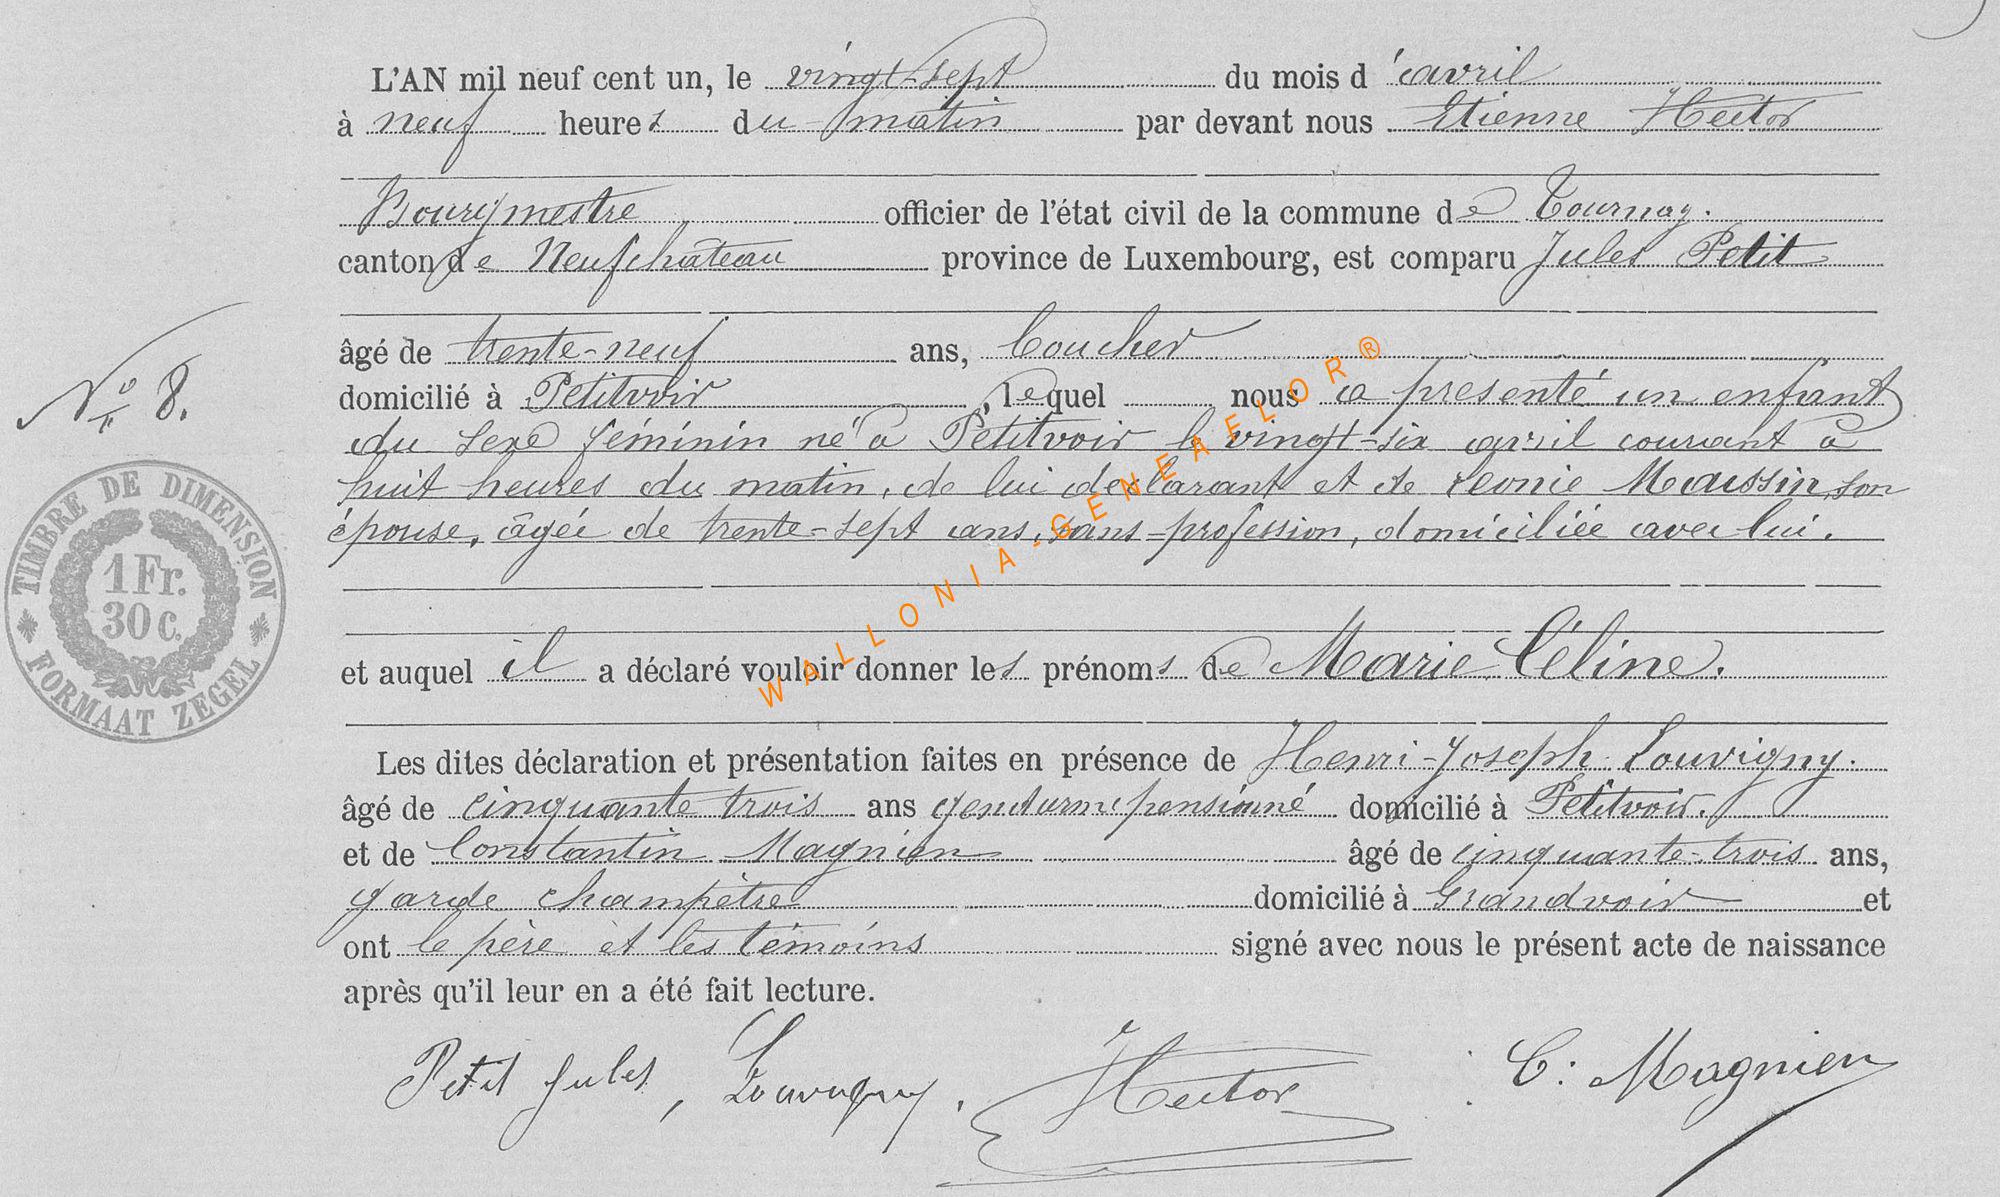 L'AN mil neuf cent un, le vingt-sept du mois d'avril
à neuf heures du matin par devant nous Etienne Hector
Bourgmestre officier de l'état civil de la commune de Tournay.
canton de Neufchâteau province de Luxembourg, est comparu Jules Petit
âgé de trente-neuf ans,
domicilié à Petitvoir, lequel nous a présenté un enfant
N° 8.
du sexe féminin né à Petitvoir le vingt-six avril courant à
huit heures du matin, de lui déclarant et de Léonie Maussin, son
épouse, âgée de trente-sept ans, sans-profession, domiciliée avec lui.
TIMBRE DE DIMENSION
1 Fr.
30 c.
FORMAAT ZEGEL
et auquel il a déclaré vouloir donner les prénoms de Marie Céline.
Les dites déclaration et présentation faites en présence de Henri-Joseph Louvigny.
âgé de cinquante trois ans gendarme pensionné domicilié à Petitvoir.
et de Constantin Magnien âgé de cinquante-trois ans,
garde champêtre domicilié à Grandvoir et
ont le père et les témoins signé avec nous le présent acte de naissance
après qu'il leur en a été fait lecture.
Petit Jules, Louvigny. Hector C: Magnien
WALLONIA-GENEAFLOR®